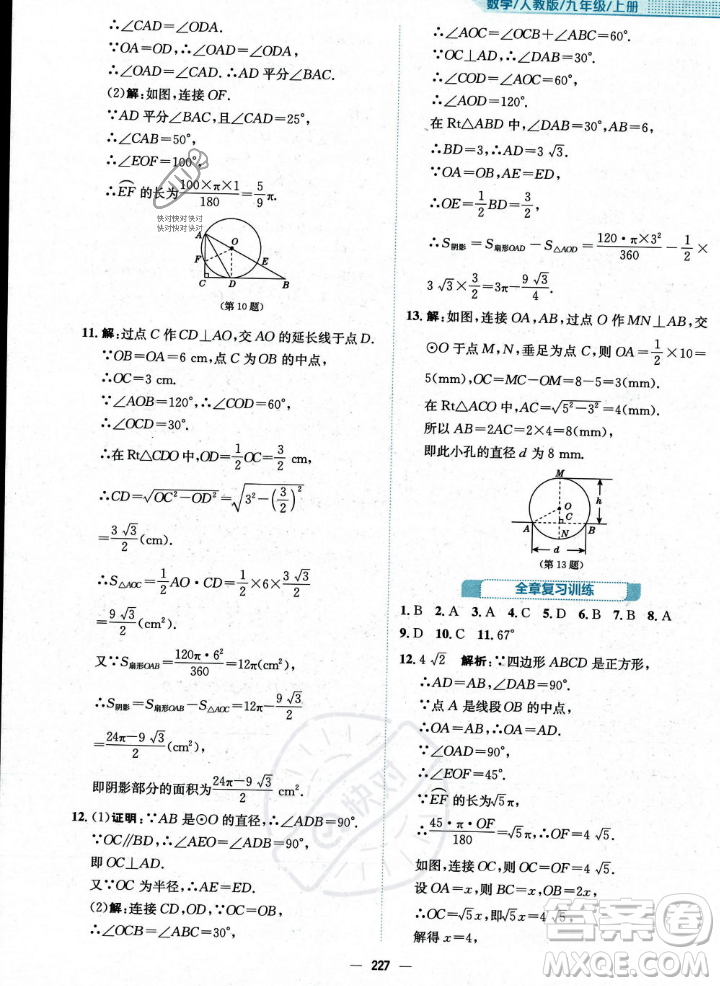 数学/人教版/九年级/上册
∴∠CAO=∠ODA.
∵OA=OD,∴∠OAD=∠ODA.
∴∠OAD=∠CAD.∴AD平分∠BAC.
(2)解:如图,连接OF.
∵AD平分∠BAC,且∠CAD=25°,
∴∠CAB=50°,
∴∠EOF=100°,
∴EF的长为100×π×1/180=5/9π.
快对快对快对
快对快对快对
A
F
O
E
C
D
B
(第10题)
11. 解:过点C作CD⊥AO,交AO的延长线于点D.
∵OB=OA=6 cm,点C为OB的中点,
∴OC=3 cm.
∵∠AOB=120°,∴∠COD=60°,
∴∠OCD=30°.
∴在Rt△CDO中,OD=1/2OC=3/2 cm.
∴CD=√(OC²-OD²)=√(3²-(3/2)²)
=3√3/2(cm).
∴S△AOC=1/2AO·CD=1/2×6×3√3/2=
9√3/2(cm²).
又∵S扇形OAB=120π·6²/360=12π(cm²),
∴S阴影=S扇形OAB-S△AOC=12π-9√3/2=
24π-9√3/2(cm²),
即阴影部分的面积为24π-9√3/2(cm²).
12. (1)证明:∵AB是⊙O的直径,∴∠ADB=90°.
∵OC∥BD,∴∠AEO=∠ADB=90°,
即OC⊥AD.
又∵OC为半径,∴AE=ED.
(2)解:连接CD,OD,∵OC∥BD,
∴∠OCB=∠CBD=30°.
∵OC=OB,∴∠OCB=∠OBC=30°,
∴∠AOC=∠OCB+∠OBC=60°.
∵∠COD=2∠CBD=60°,
∴∠AOD=120°.
在Rt△ABD中,∠DAB=30°,AB=6,
∴BD=3,∴AD=3√3.
∵OA=OB,AE=ED,
∴OE=1/2BD=3/2,
∴S阴影=S扇形OAD-S△AOD=120·π×3²/360-1/2×
3√3×3/2=3π-9√3/4.
13. 解:如图,连接OA,过点O作MN⊥AB,交
⊙O于点M,N,垂足为点C,则OA=1/2×10=
5(mm),OC=MC-OM=8-5=3(mm).
在Rt△ACO中,AC=√(5²-3²)=4(mm).
所以AB=2AC=2×4=8(mm).
即此小孔的直径d为8 mm.
M
O
C
h
A
N
B
d
(第13题)
全章复习训练
1. B 2. A 3. A 4. C 5. D 6. B 7. B 8. A
9. D 10. C 11. 67°
12. 4√2 解析:∵四边形ABCD是正方形,
∴OA=OD,∠AOD=90°.
∵点A是线段OB的中点,
∴OA=AB,∴OA=AD,
∵∠OAD=90°,
∴∠EOF=45°.
∵EF的长为√5π,
∴45·π·OF/180=√5π,∴OF=4√5.
如图,连接OC,∴OC=OF=4√5.
设OA=x,则BC=x,OB=2x,
∴OC=√5x,∴√5x=4√5,
解得x=4,
快对
答案圈
MXQE.COM
227